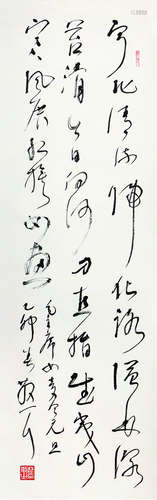 宁化清流归化路隘林深
苔滑今日向何方直指武夷山
下山下风展红旗如画
毛主席如梦令元旦
乙卯春